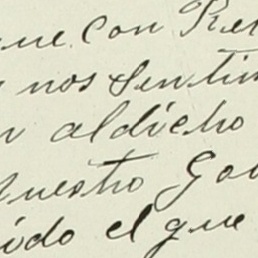 que con Re
nos sentim
n aldicho
nuestro Go
ido el que